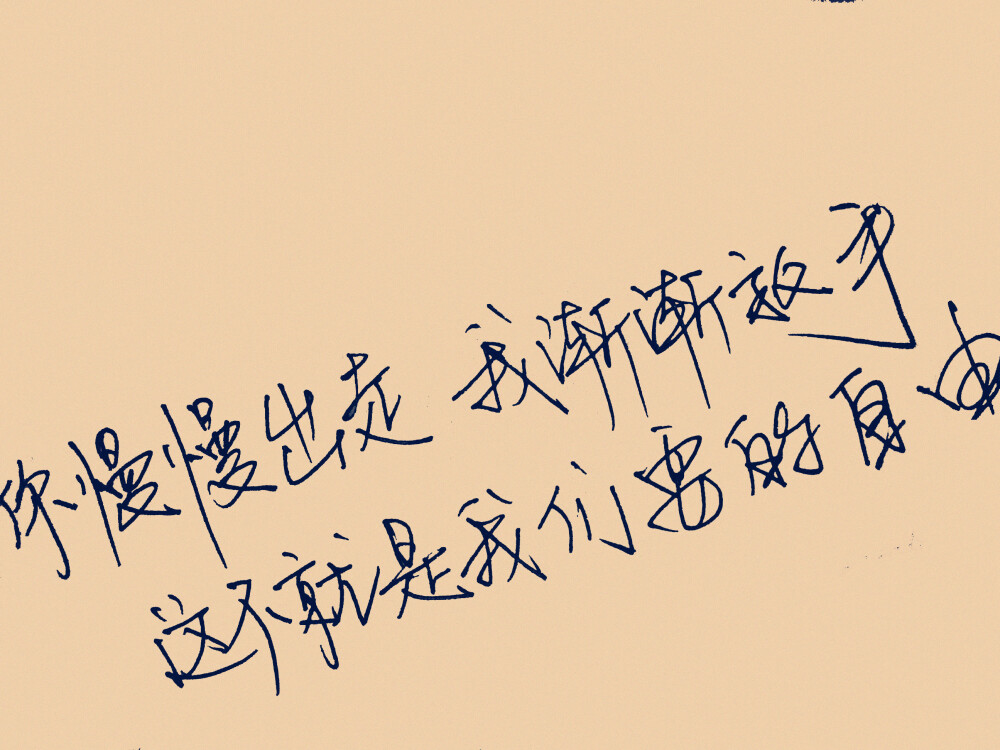 你慢慢出走 我渐渐放手
这不就是我们要的自由